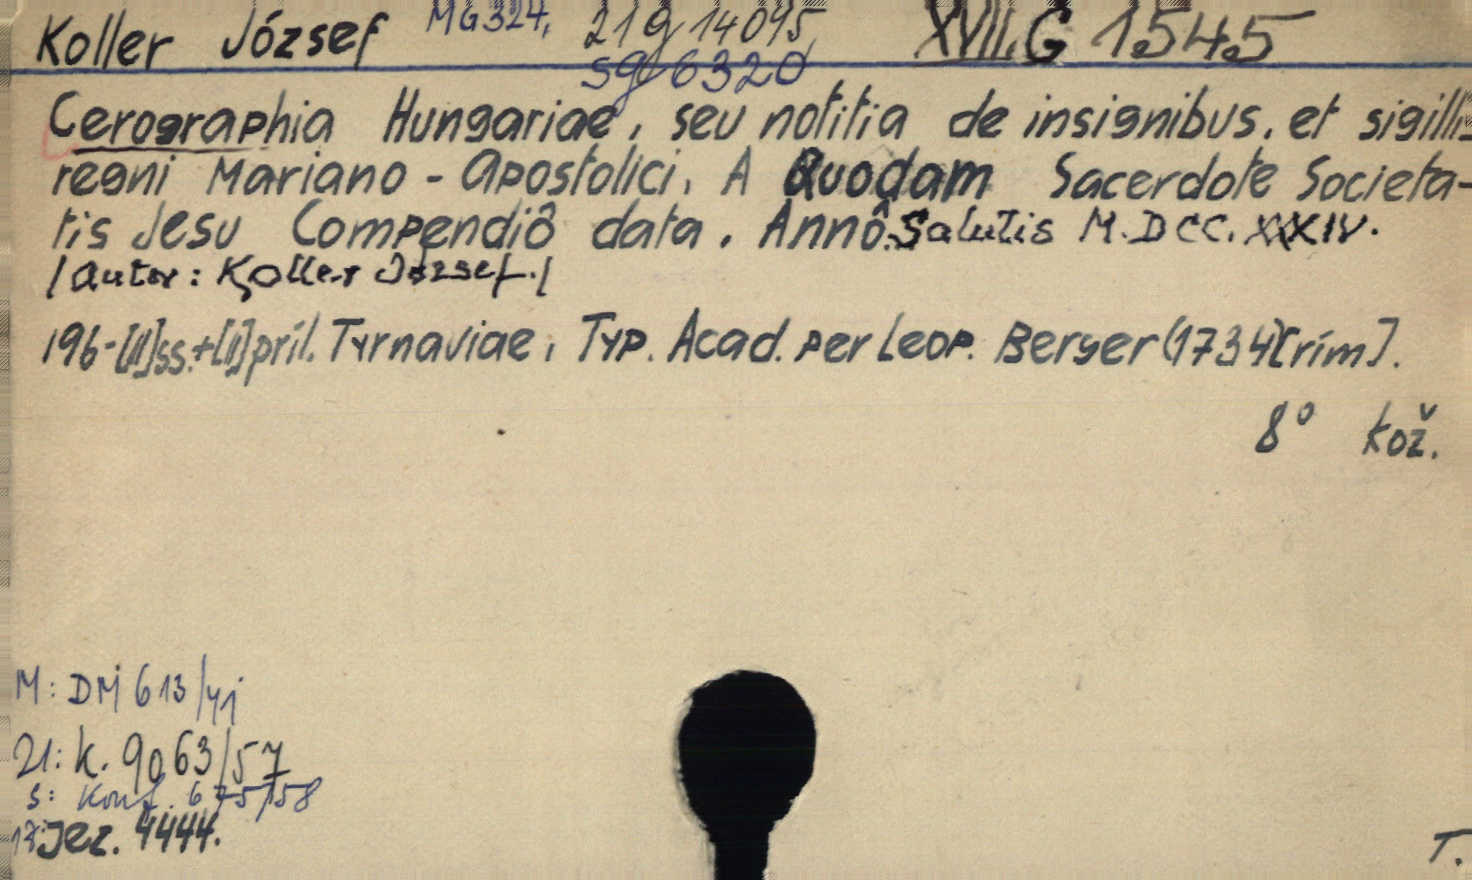 Koller József MG324, 21g 14095 XVII.G 1545
Sg 6320
Cerographia Hungariae, seu notitia de insignibus, et sigillis
regni Mariano-Apostolici. A Quodam Sacerdote Societa-
tis Jesu Compendiô data. Annô Salutis M.DCC.XXXIV.
/Autor: Koller József./
196-[II]ss.+[I]príl. Tyrnaviae, Typ. Acad. per Leop. Berger (1734)[rím].
8° kož.
M: DM 613/41
21: k. 9063/57
S: Konf. 675/58
17: Jez. 4444.
T.